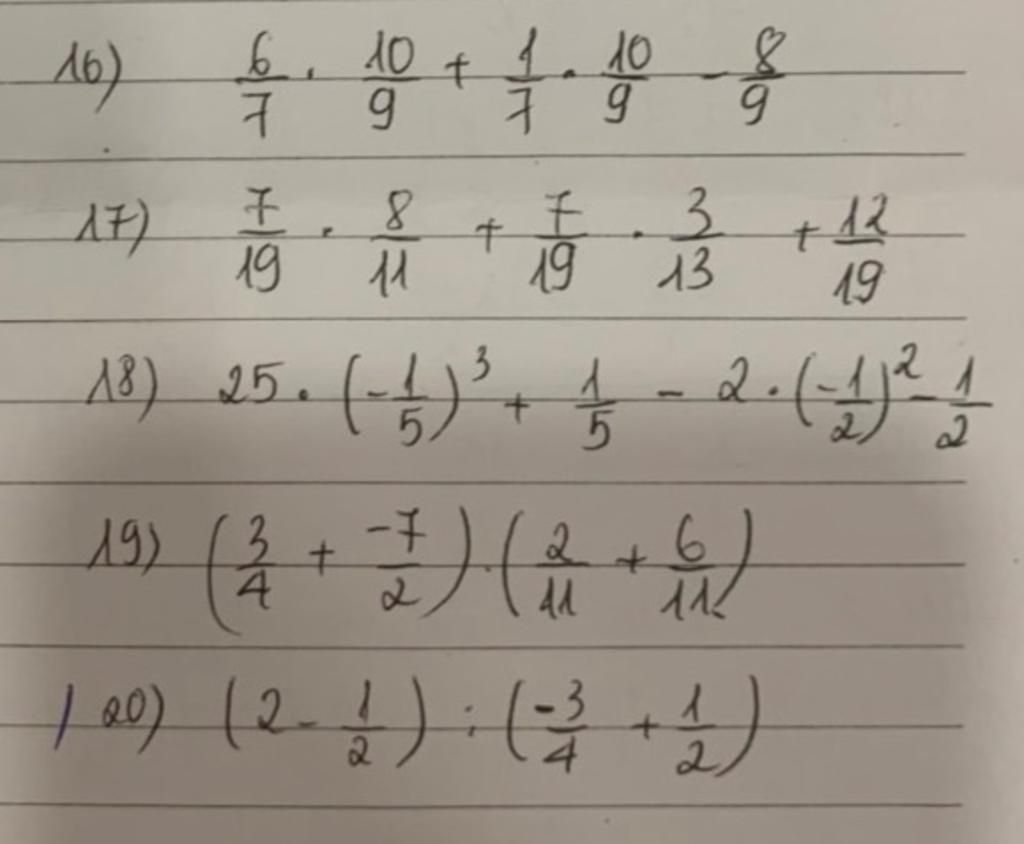 16) 6/7 · 10/9 + 1/7 · 10/9 - 8/9
17) 7/19 · 8/11 + 7/19 · 3/13 + 12/19
18) 25 · (-1/5)³ + 1/5 - 2 · (-1/2)² - 1/2
19) (3/4 + -7/2) · (2/11 + 6/11)
20) (2 - 1/2) : (-3/4 + 1/2)